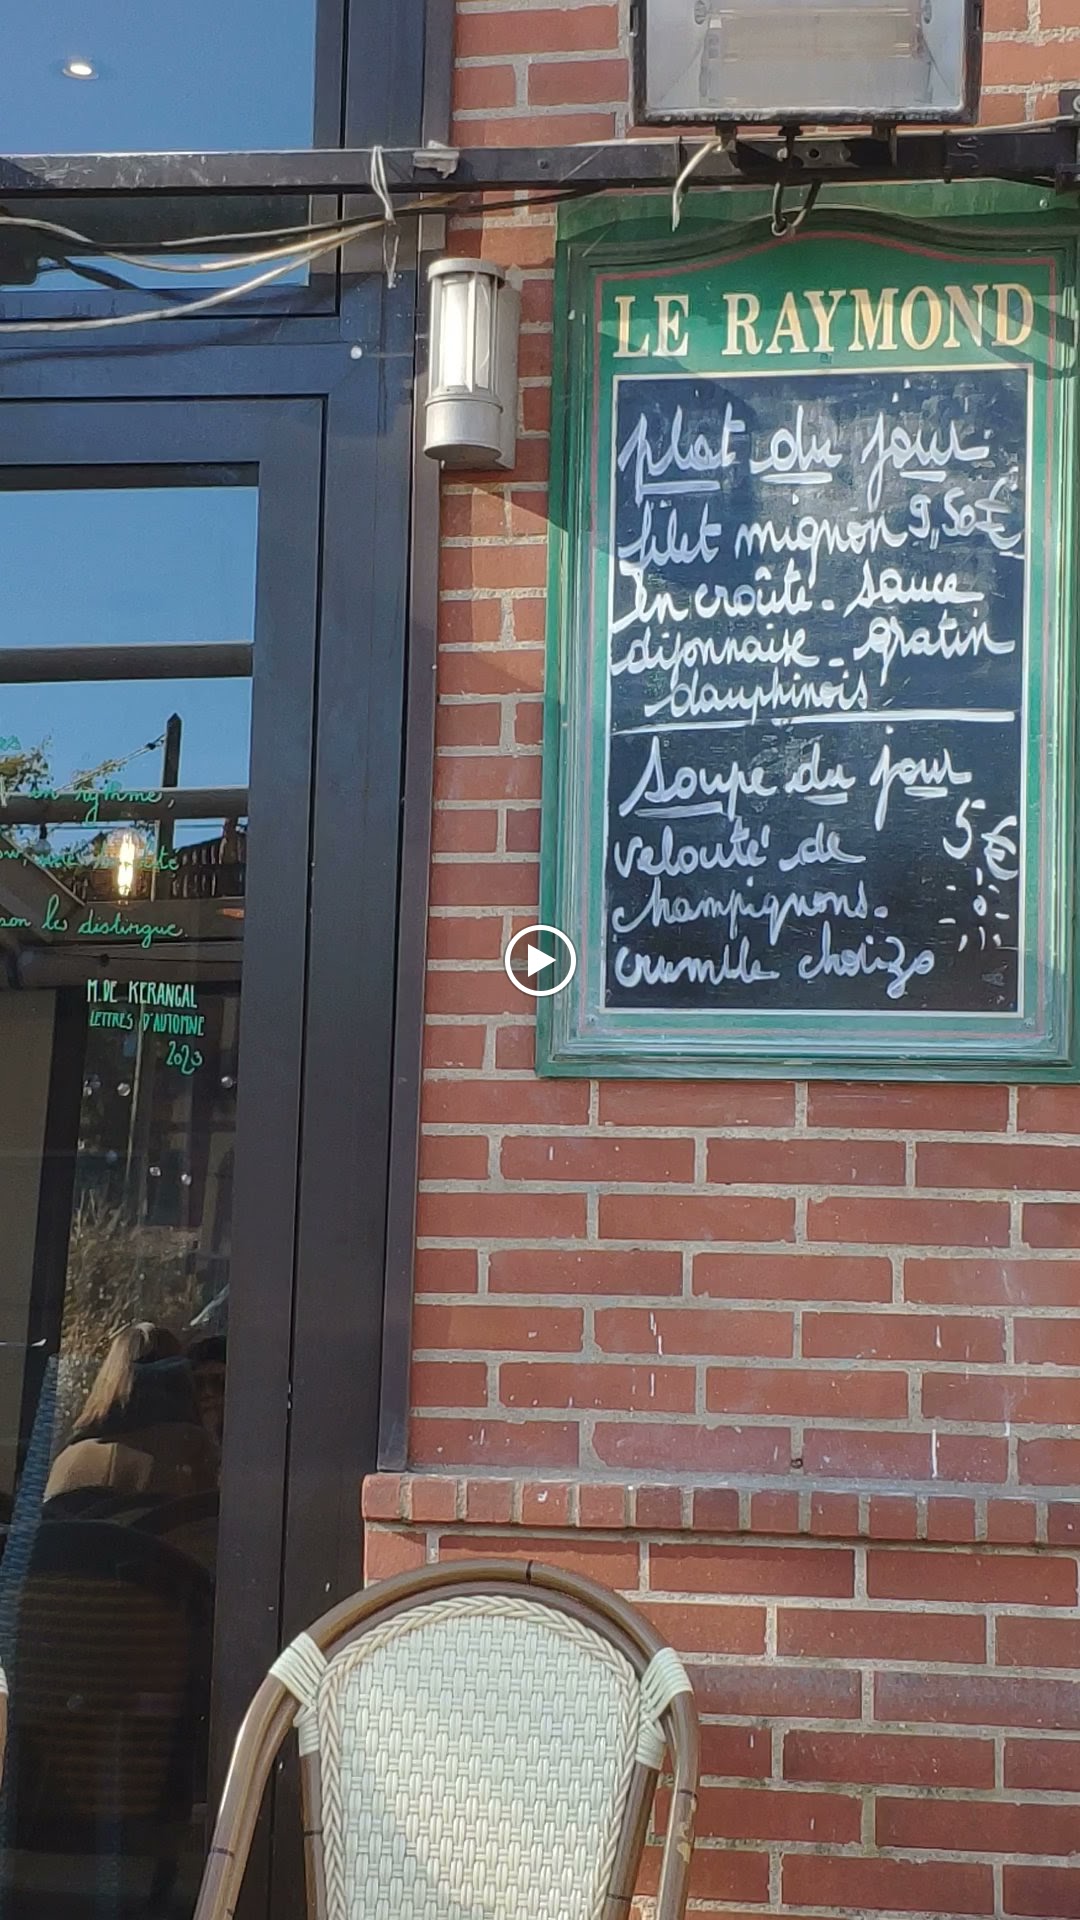 LE RAYMOND
plat du jour
filet mignon 9,50€
en croûte - sauce
dijonnaise - gratin
dauphinois
Soupe du jour
velouté de 5€
champignons -
crumble chorizo
rythme,
son les distingue.
M. DE KERANGAL
LETTRES D'AUTOMNE
2023